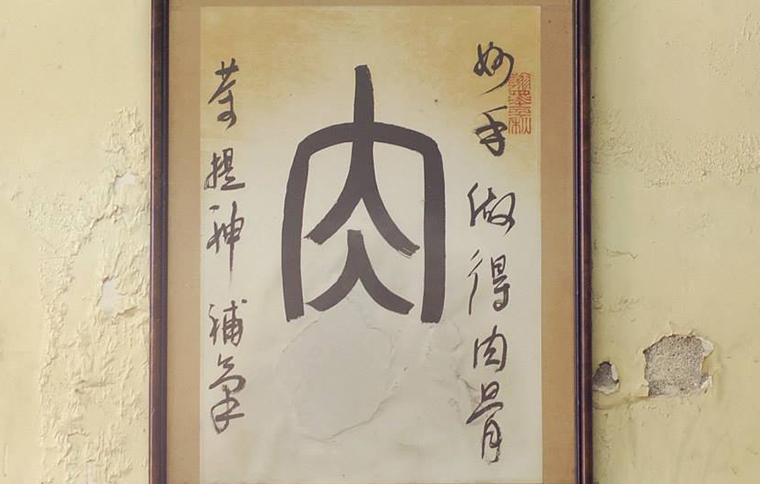 妙手做得肉骨
肉
茶提神補氣